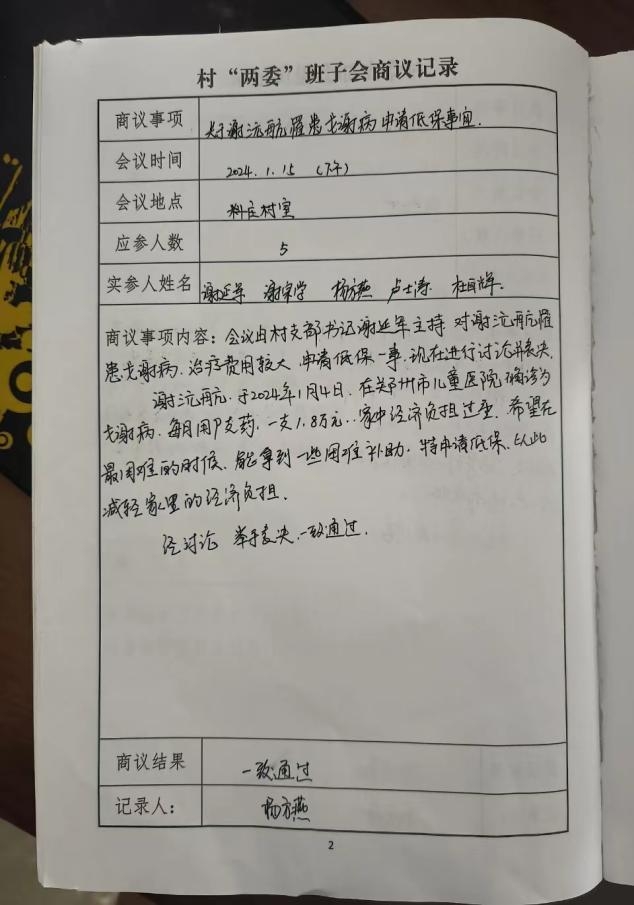 村“两委”班子会商议记录
商议事项 关于谢沅航罹患戈谢病申请低保事宜.
会议时间 2024.1.15 (下午)
会议地点 村室
应参人数 5
实参人姓名 谢延军 谢荣学 杨方燕 卢士涛
商议事项内容：会议由村支部书记谢延军主持 对谢沅航罹
患戈谢病.治疗费用较大 申请低保一事.现在进行讨论并表决.
谢沅航.于2024年1月4日.在郑州市儿童医院确诊为
戈谢病.每月用支药.一支1.8万元..家中经济负担过重.希望在
最困难的时候.能拿到一些困难补助.特申请低保.以此
减轻家里的经济负担.
经讨论 举手表决.一致通过.
商议结果 一致通过
记录人： 杨方燕
2